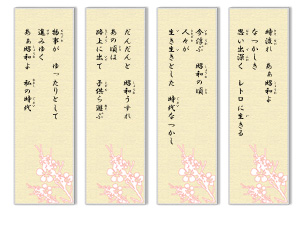 時流れ　あぁ昭和よ
なつかしき
思い出深く　レトロに生きる
今偲ぶ　昭和の頃
人々が
生き生きとした　時代なつかし
だんだんと　昭和うすれ
あの頃は
路上に出て　子供ら遊ぶ
物事が　ゆったりとして
進みゆく
あぁ昭和よ　私の時代